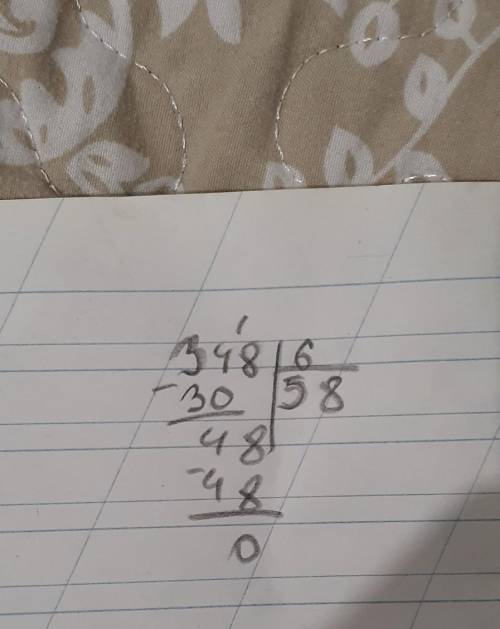 348 | 6
-30 | 58
48
-48
0